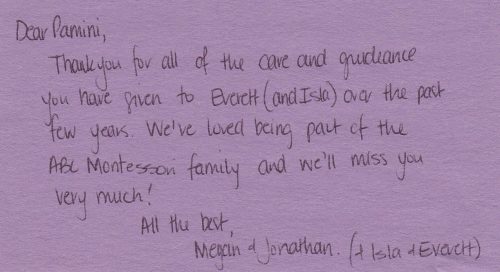 Dear Pamini,
Thank you for all of the care and guidance
you have given to Everett (and Isla) over the past
few years. We've loved being part of the
ABC Montessori family and we'll miss you
very much!
All the best,
Megan & Jonathan. (& Isla & Everett)